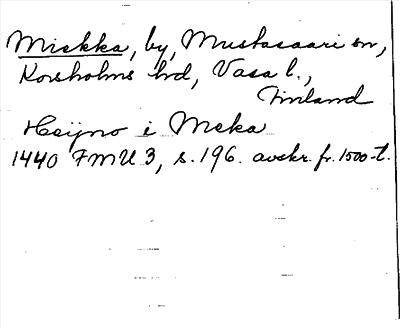 Miekka, by, Mustasaari sn,
Korsholms hd, Vasa l.,
Finland
Heijno i Meka
1440 FMU 3, s. 196. avskr. fr. 1500-t.